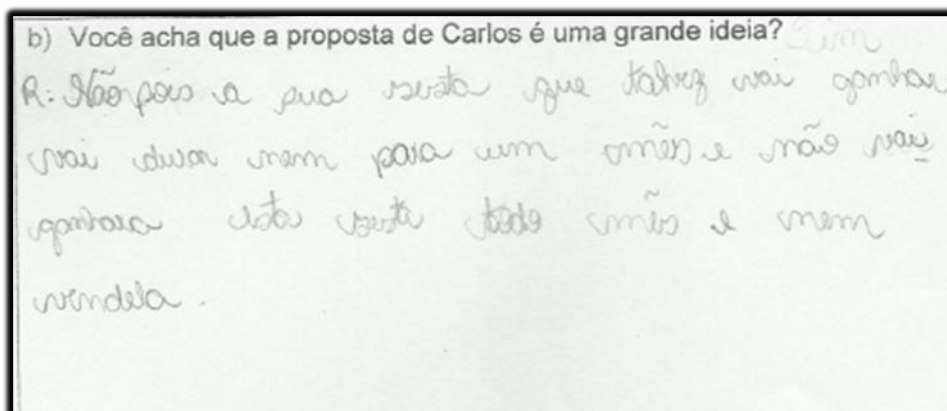 b) Você acha que a proposta de Carlos é uma grande ideia?
R: Não pois a sua sesta que talvez vai ganhar
vai durar nem para um mês e não vai
ganhara esta sesta todo mês e nem
vendela.